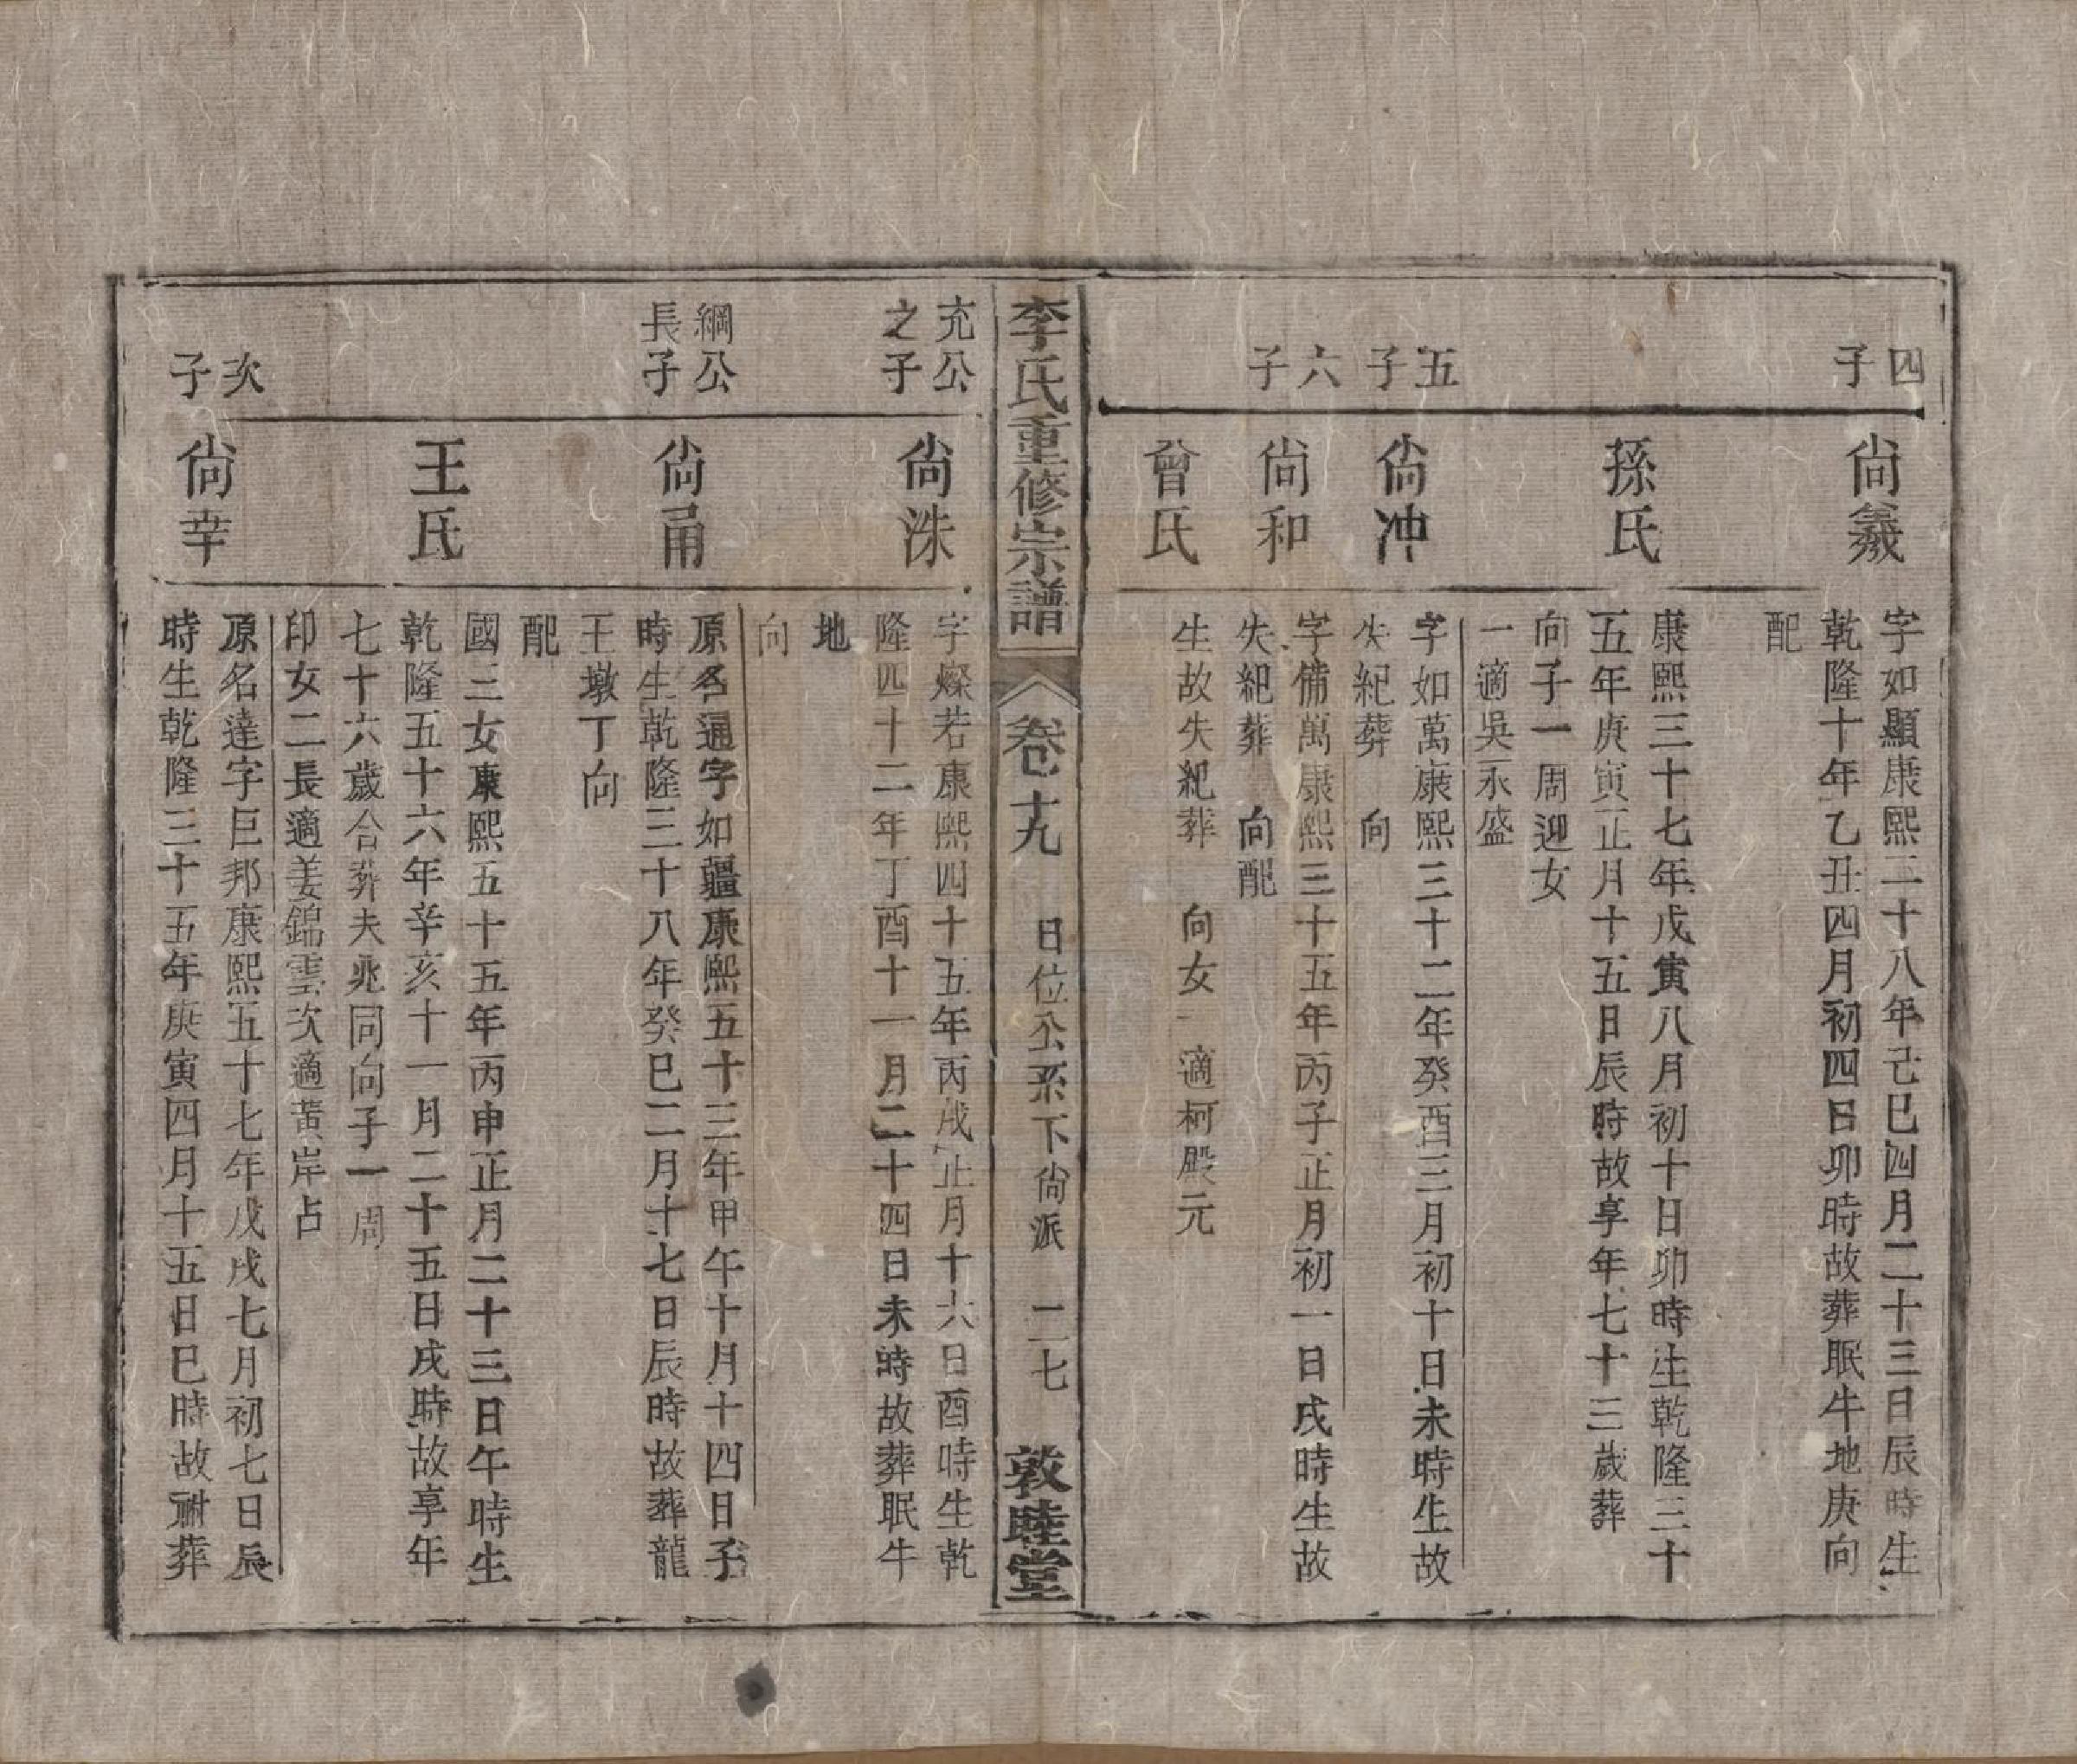 四子
尙羲
字如顯康熙二十八年己巳四月二十三日辰時生
乾隆十年乙丑四月初四日卯時故葬眠牛地庚向
配
孫氏
康熙三十七年戊寅八月初十日卯時生乾隆三十
五年庚寅正月十五日辰時故享年七十三歲葬
向子一周迎女
一適吳永盛
五子
尙冲
字如萬康熙三十二年癸酉三月初十日未時生故
失紀葬　向
六子
尙和
字備萬康熙三十五年丙子正月初一日戌時生故
失紀葬　向配
曾氏
生故失紀葬　向女一適柯殿元
李氏重修宗譜　卷十九　日位公系下尙派　二七　敦睦堂
充公之子
尙洙
字燦若康熙四十五年丙戌正月十六日酉時生乾
隆四十二年丁酉十一月二十四日未時故葬眠牛
地
向
綱公長子
尙甬
原名通字如疆康熙五十三年甲午十月十四日子
時生乾隆三十八年癸巳二月十七日辰時故葬龍
王墩丁向
配
王氏
國三女康熙五十五年丙申正月二十三日午時生
乾隆五十六年辛亥十一月二十五日戌時故享年
七十六歲合葬夫兆同向子一周
印女二長適姜錦雲次適黃岸占
次子
尙幸
原名達字巨邦康熙五十七年戊戌七月初七日辰
時生乾隆三十五年庚寅四月十五日巳時故祔葬